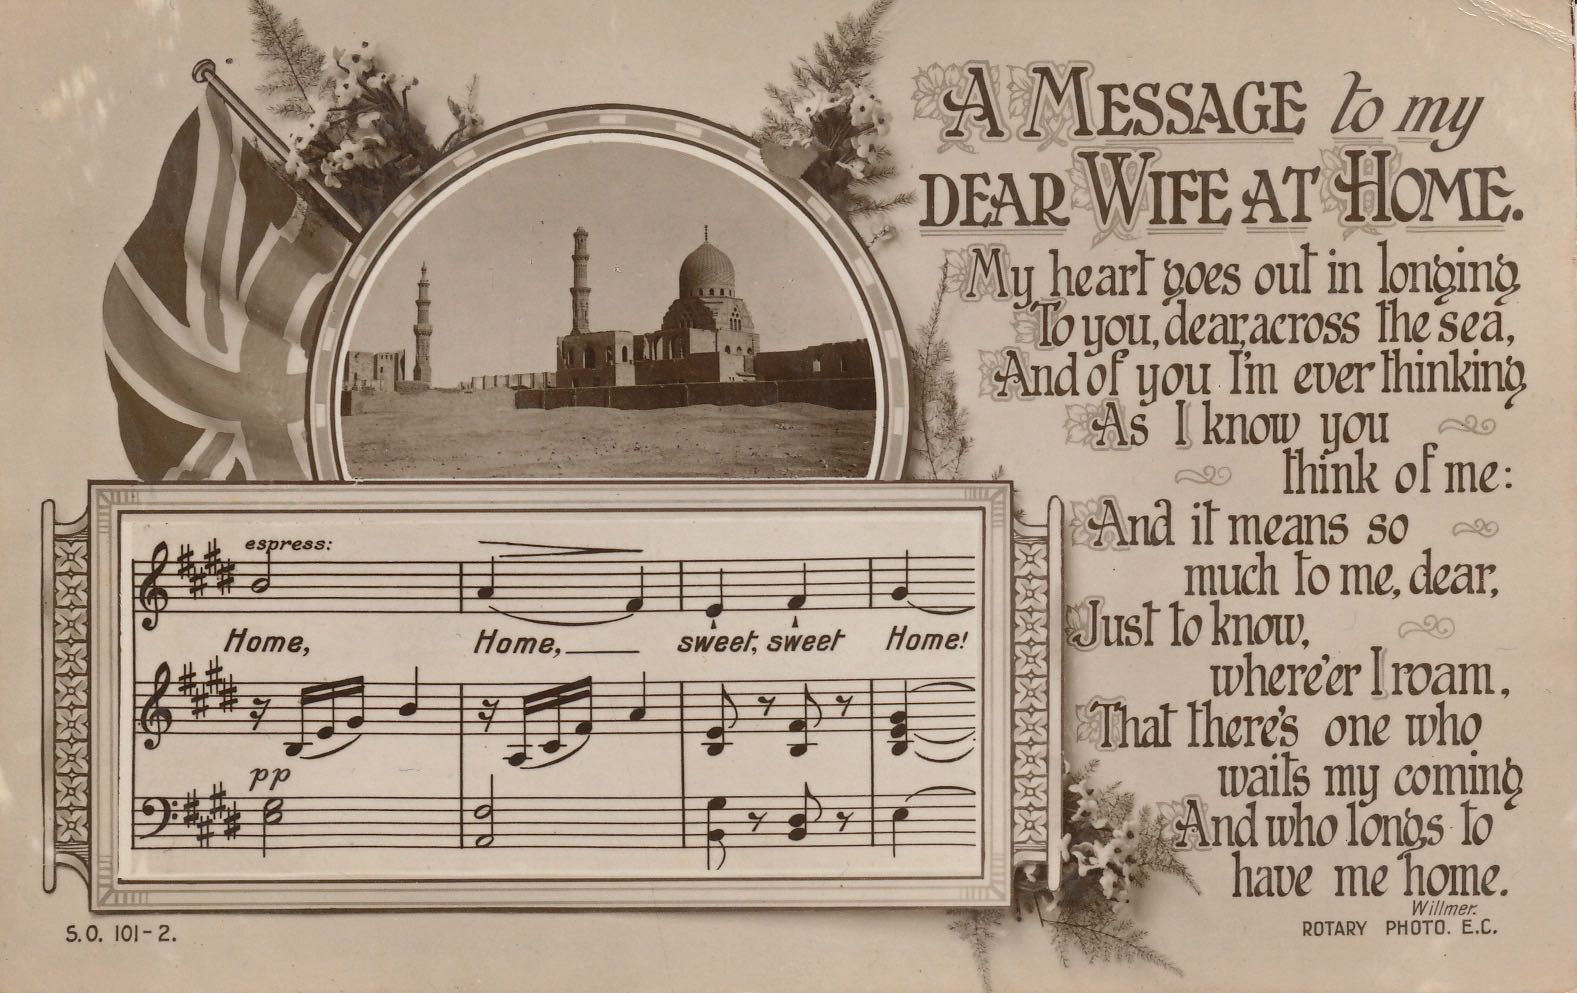 A MESSAGE to my
DEAR WIFE AT HOME.
My heart goes out in longing
To you, dear, across the sea,
And of you I'm ever thinking
As I know you
think of me:
And it means so
much to me, dear,
Just to know,
where'er I roam,
That there's one who
waits my coming
And who longs to
have me home.
Willmer.
ROTARY PHOTO. E.C.
espress:
Home, Home, sweet, sweet Home!
pp
S.O. 101-2.